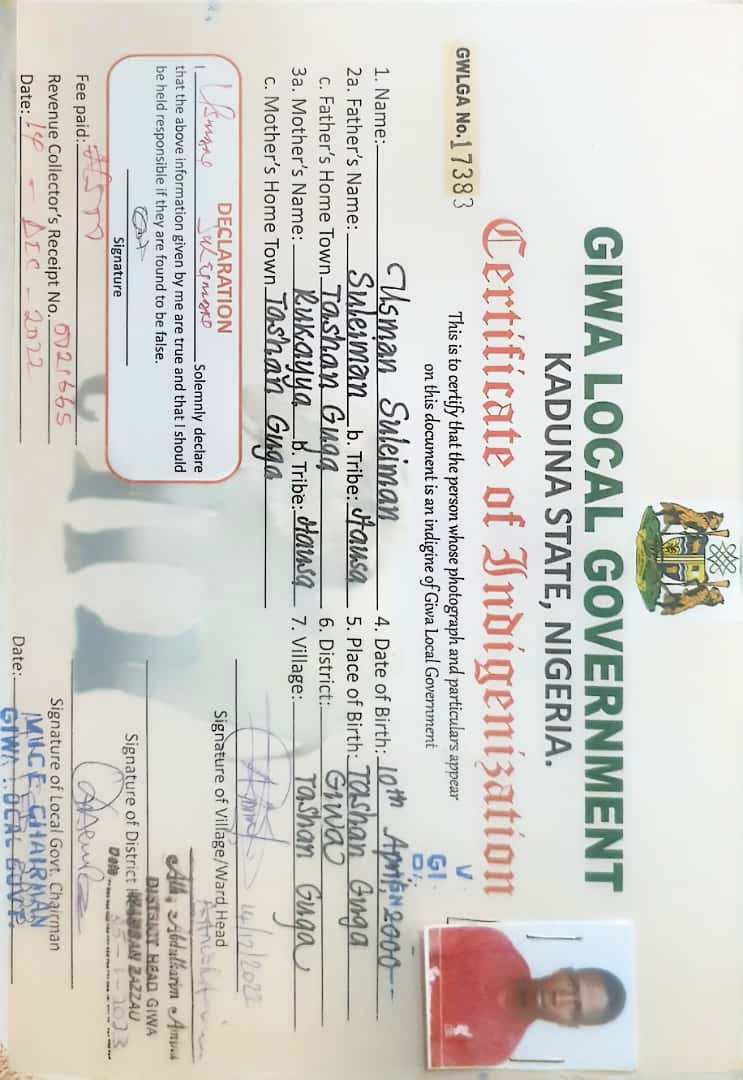 GIWA LOCAL GOVERNMENT
KADUNA STATE, NIGERIA.
Certificate of Indigenization
GWLGA No. 17383
This is to certify that the person whose photograph and particulars appear
on this document is an indigine of Giwa Local Government
V
GI
1. Name: Usman Suleiman
4. Date of Birth: 10th April 2000
2a. Father's Name: Suleiman b. Tribe: Hausa
5. Place of Birth: Tashan Guga
c. Father's Home Town Tashan Guga
6. District: Giwa
3a. Mother's Name: Rukayya b. Tribe: Hausa
7. Village: Tashan Guga
c. Mother's Home Town Tashan Guga
DECLARATION
I Solemnly declare
that the above information given by me are true and that I should
be held responsible if they are found to be false.
Signature
Fee paid:
Revenue Collector's Receipt No. 0021665
Date: 14 - DEC - 2022
14/12/2022
Signature of Village/Ward Head
Alh. Abdulkarim
DISTRICT HEAD GIWA
ZAZZAU
Signature of District
Date 1-2023
Signature of Local Govt. Chairman
CHAIRMAN
Date:
GIWA LOCAL GOVT.